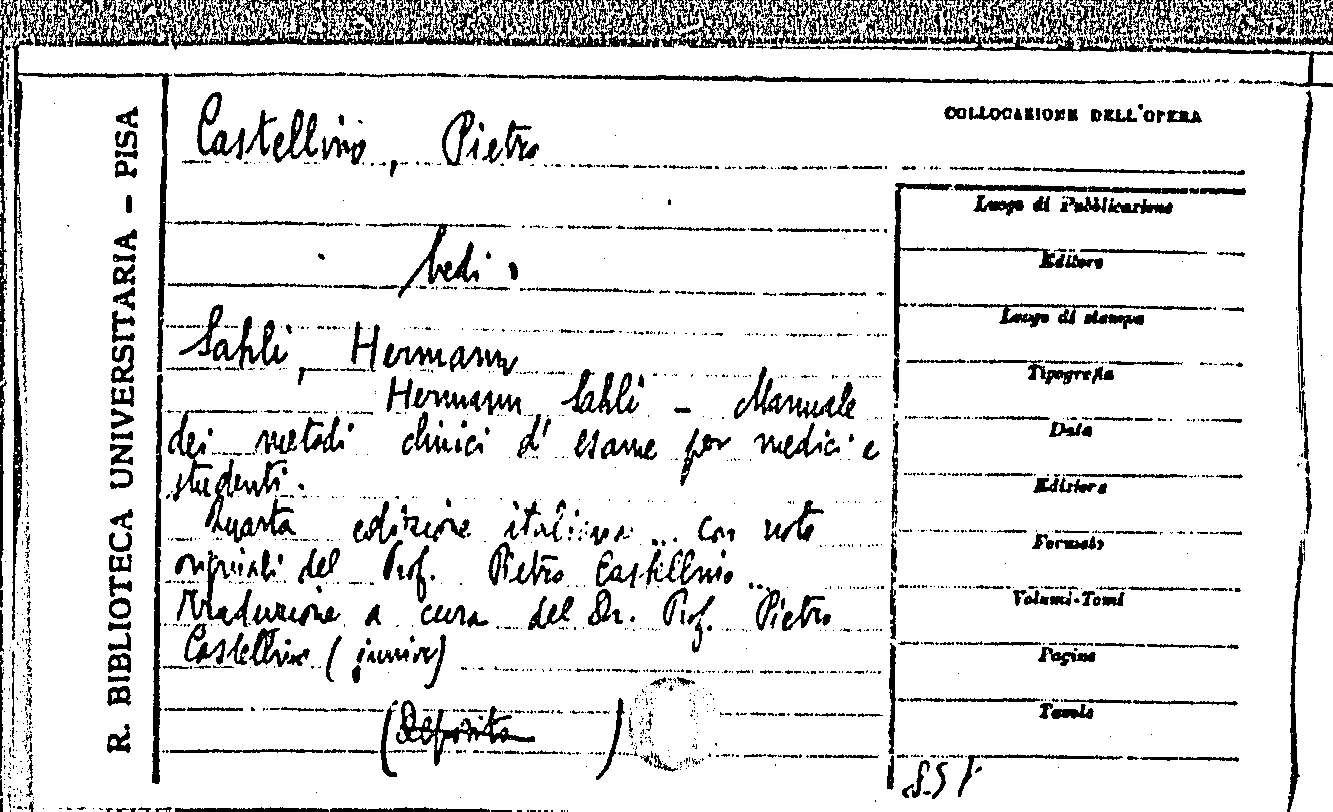 R. BIBLIOTECA UNIVERSITARIA - PISA
Castellino, Pietro
COLLOCAZIONE DELL'OPERA
Vedi:
Sahli, Hermann
Hermann Sahli - Manuale
dei metodi clinici d'esame per medici e
studenti.
Quarta edizione italiana ... con note
originali del Prof. Pietro Castellino ...
Traduzione a cura del Dr. Prof. Pietro
Castellino (junior)
( )
Luogo di Pubblicazione
Editore
Luogo di stampa
Tipografia
Data
Edizione
Formato
Volumi-Tomi
Pagine
Tavole